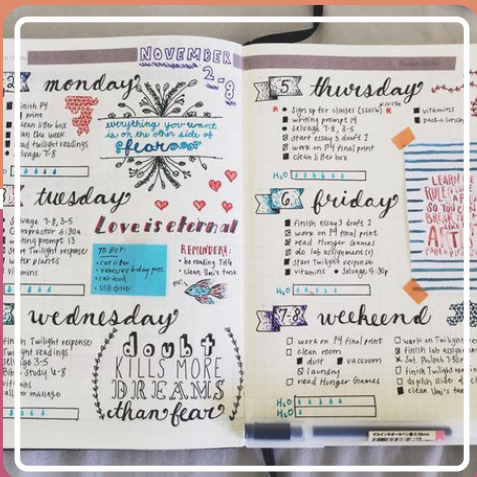 NOVEMBER
2-8
monday
finish P4
print
clean litter box
read twilight readings
selvage 7-8
everything you want
is on the other side of
fear
tuesday
selvage 7-8, 3-5
chiropractor 4:30a
writing prompt 13
start Twilight response
water plants
vitamins
Love is eternal
TO BUY:
• cat litter
• cat food
• USB drive
REMINDERS:
• be reading THG
• clean Uni's tank
wednesday
finish Twilight response
Twilight readings
selvage 3-5
study 4-8
vitamins
massage
doubt
KILLS MORE
DREAMS
than fear
5 thursday
sign up for classes
writing prompt 14
selvage 7-8, 3-5
start essay 3 draft 1
work on P4 final print
clean litter box
vitamins
pack lunch
H2O
6 friday
finish essay 3 draft 1
work on P4 final print
read Hunger Games
do lab assignment(s)
start Twilight response
vitamins • selvage
H2O
LEARN
RULE
SO YOU
BREAK
ARTIS
7-8 weekend
work on P4 final print
clean room
dust vacuum
laundry
read Hunger Games
work on Twilight
finish lab assignment
finish Twilight
clean Uni's tank
H2O
H2O